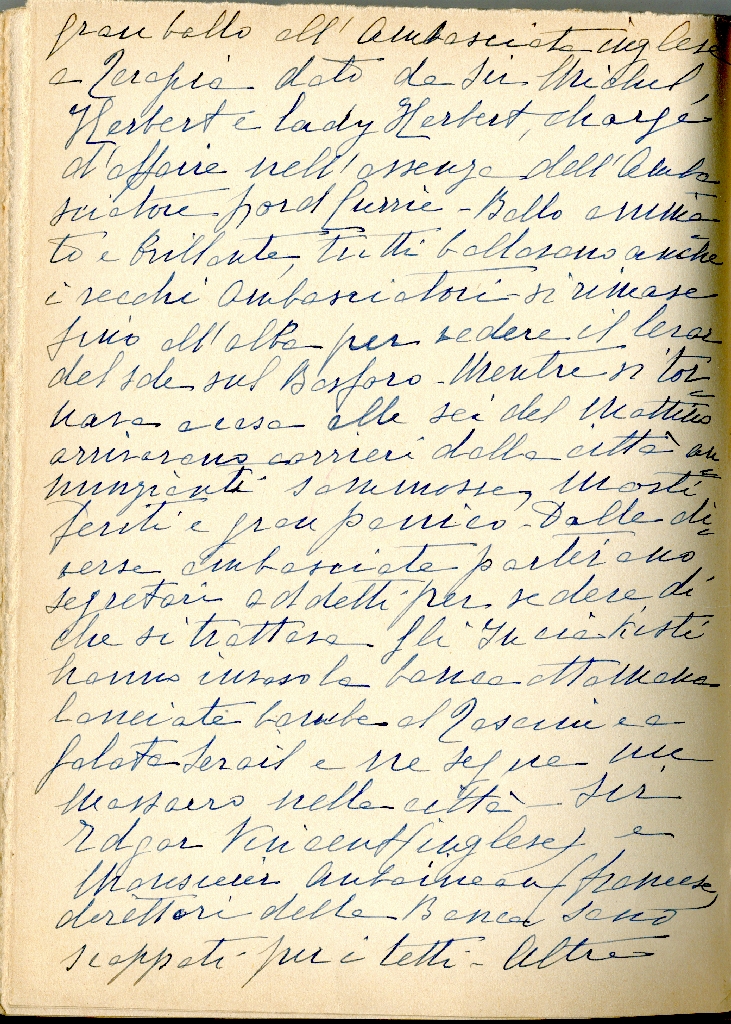 gran ballo all'Ambasciata inglese
a Terapia dato da Sir Michel
Herbert e lady Herbert, chargé
d'affaire nell'assenza dell'Amba
sciatore Lord Currie - Ballo anima
to e brillante, tutti ballarono anche
i vecchi Ambasciatori - si rimase
fino all'alba per vedere il levar
del sole sul Bosforo - Mentre si tor=
nava a casa alle sei del mattino
arrivarono corrieri dalla città an=
nunzianti sommosse, morti
feriti e gran panico - Dalle di=
verse ambasciate partirono
segretari addetti per vedere di
che si trattava gli
hanno invaso la banca ottomana
lanciate bombe al e a
Galata Serail e ne segue un
massacro nella città - Sir
Edgar Vincent (inglese) e
Monsieur (francese)
direttori della Banca sono
scappati per i tetti - Altre